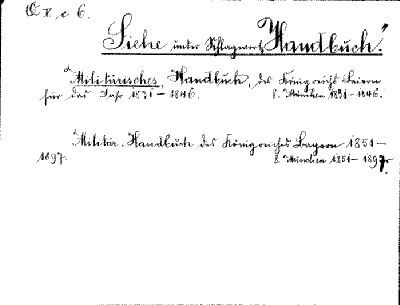 C V. c 6.
Siehe unter Schlagwort „Handbuch“.
Militärisches Handbuch des Königreichs Baiern
für das Jahr 1831–1846. 8. München 1831–1846.
Militär-Handbuch des Königreiches Bayern 1851–
1897. 8. München 1851–1897.